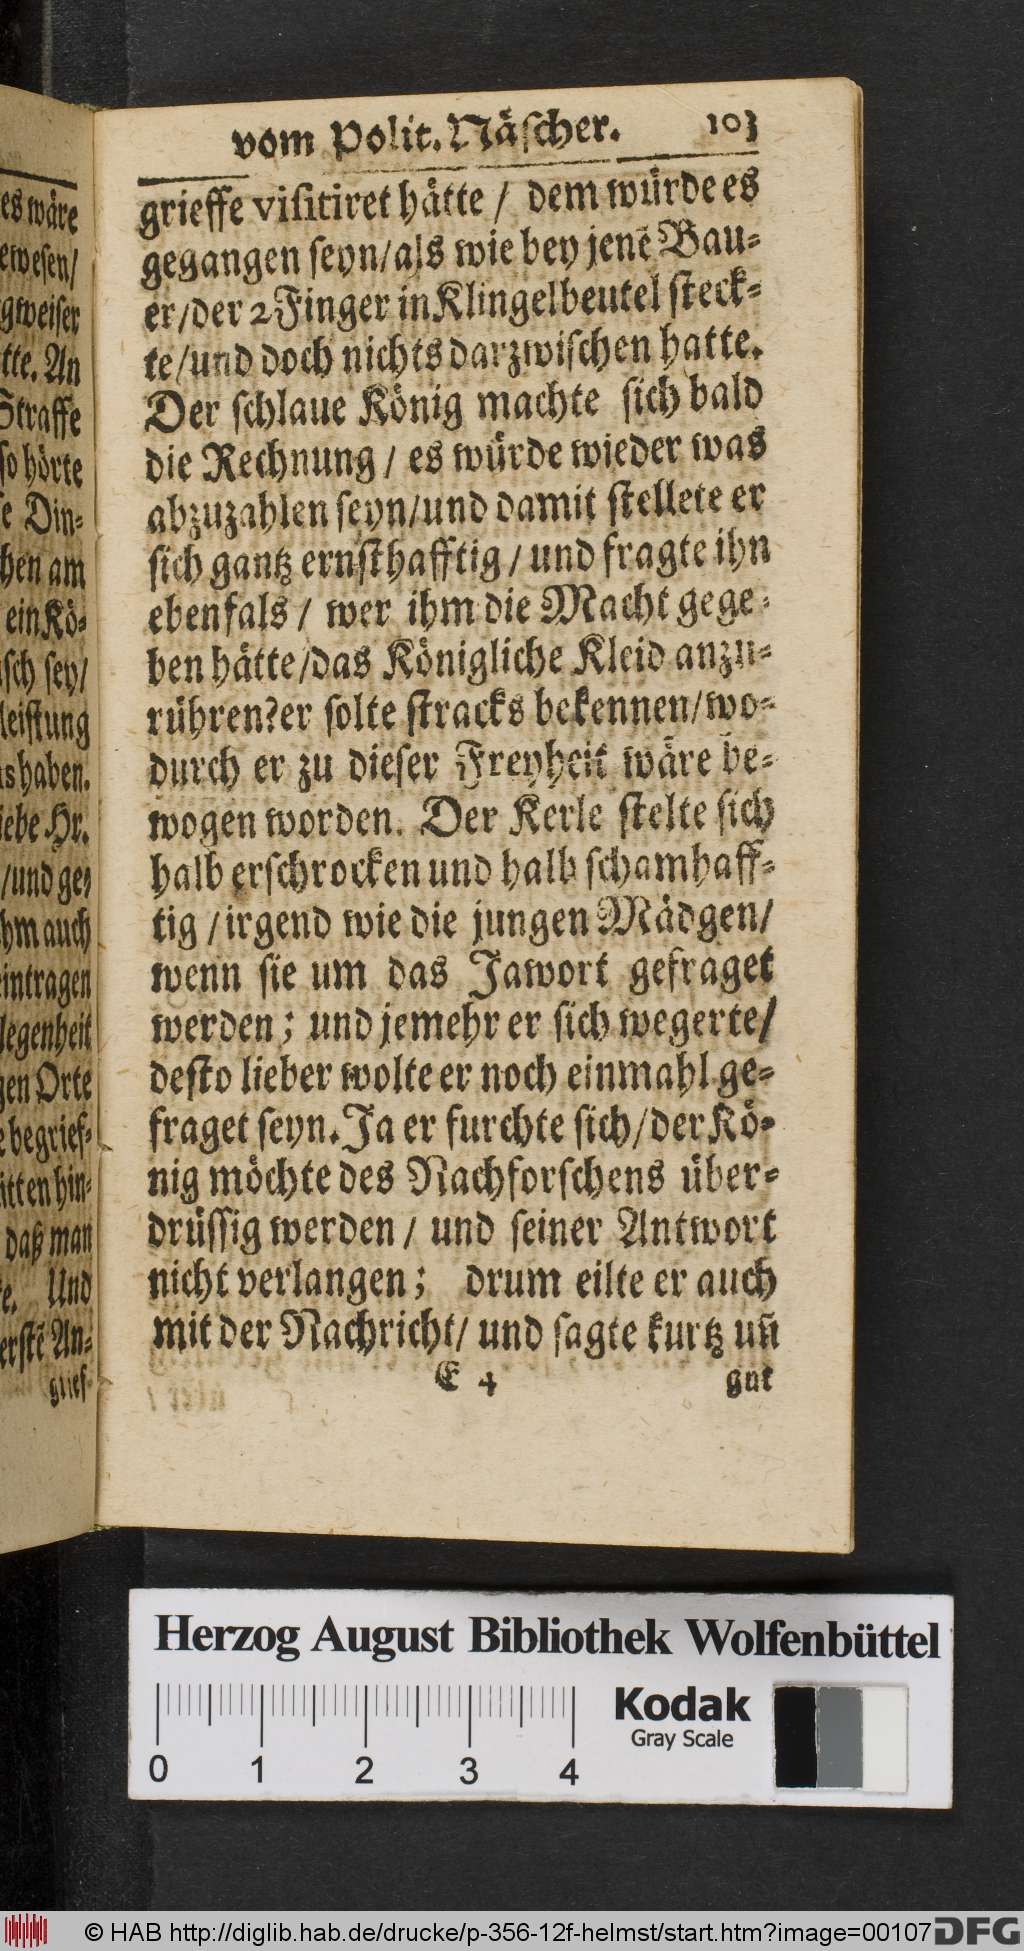 es wäre
ewesen/
gweiser
tte. An
Straffe
so hörte
se Din-
hen am
ein Kö-
isch sey/
leistung
as haben.
iebe Hr.
/und ge-
hm auch
eintragen
legenheit
gen Orte
e begrief-
itten hin-
daß man
e. Und
erstē An-
grief-
vom Polit. Näscher. 103
grieffe visitiret hätte / dem würde es
gegangen seyn/als wie bey jenē Bau-
er/der 2 Finger in Klingelbeutel steck-
te/und doch nichts darzwischen hatte.
Der schlaue König machte sich bald
die Rechnung / es würde wieder was
abzuzahlen seyn/und damit stellete er
sich gantz ernsthafftig / und fragte ihn
ebenfals / wer ihm die Macht gege-
ben hätte/das Königliche Kleid anzu-
rühren?er solte stracks bekennen/wo-
durch er zu dieser Freyheit wäre be-
wogen worden. Der Kerle stelte sich
halb erschrocken und halb schamhaff-
tig / irgend wie die jungen Mädgen/
wenn sie um das Jawort gefraget
werden; und jemehr er sich wegerte/
desto lieber wolte er noch einmahl ge-
fraget seyn. Ja er furchte sich/der Kö-
nig möchte des Nachforschens über-
drüssig werden / und seiner Antwort
nicht verlangen; drum eilte er auch
mit der Nachricht/ und sagte kurtz un̄
E 4 gut
Herzog August Bibliothek Wolfenbüttel
0 1 2 3 4
Kodak
Gray Scale
© HAB http://diglib.hab.de/drucke/p-356-12f-helmst/start.htm?image=00107
DFG